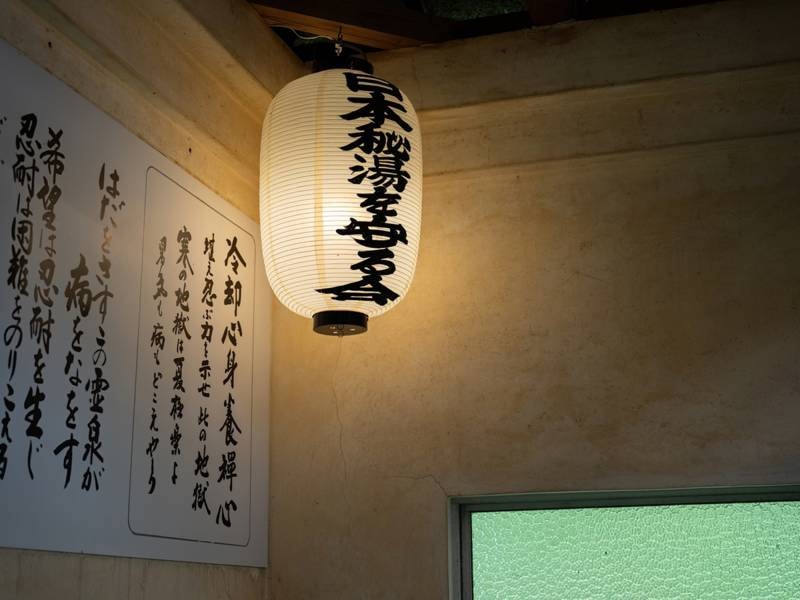 日本秘湯を守る会
冷却心身養禪心
堪え忍ぶ力を示せ此の地獄
寒の地獄は夏極楽よ
暑気も病もどこえやら
はだをさすこの霊泉が
病をなをす
希望は忍耐を生じ
忍耐は困難をのりこえる